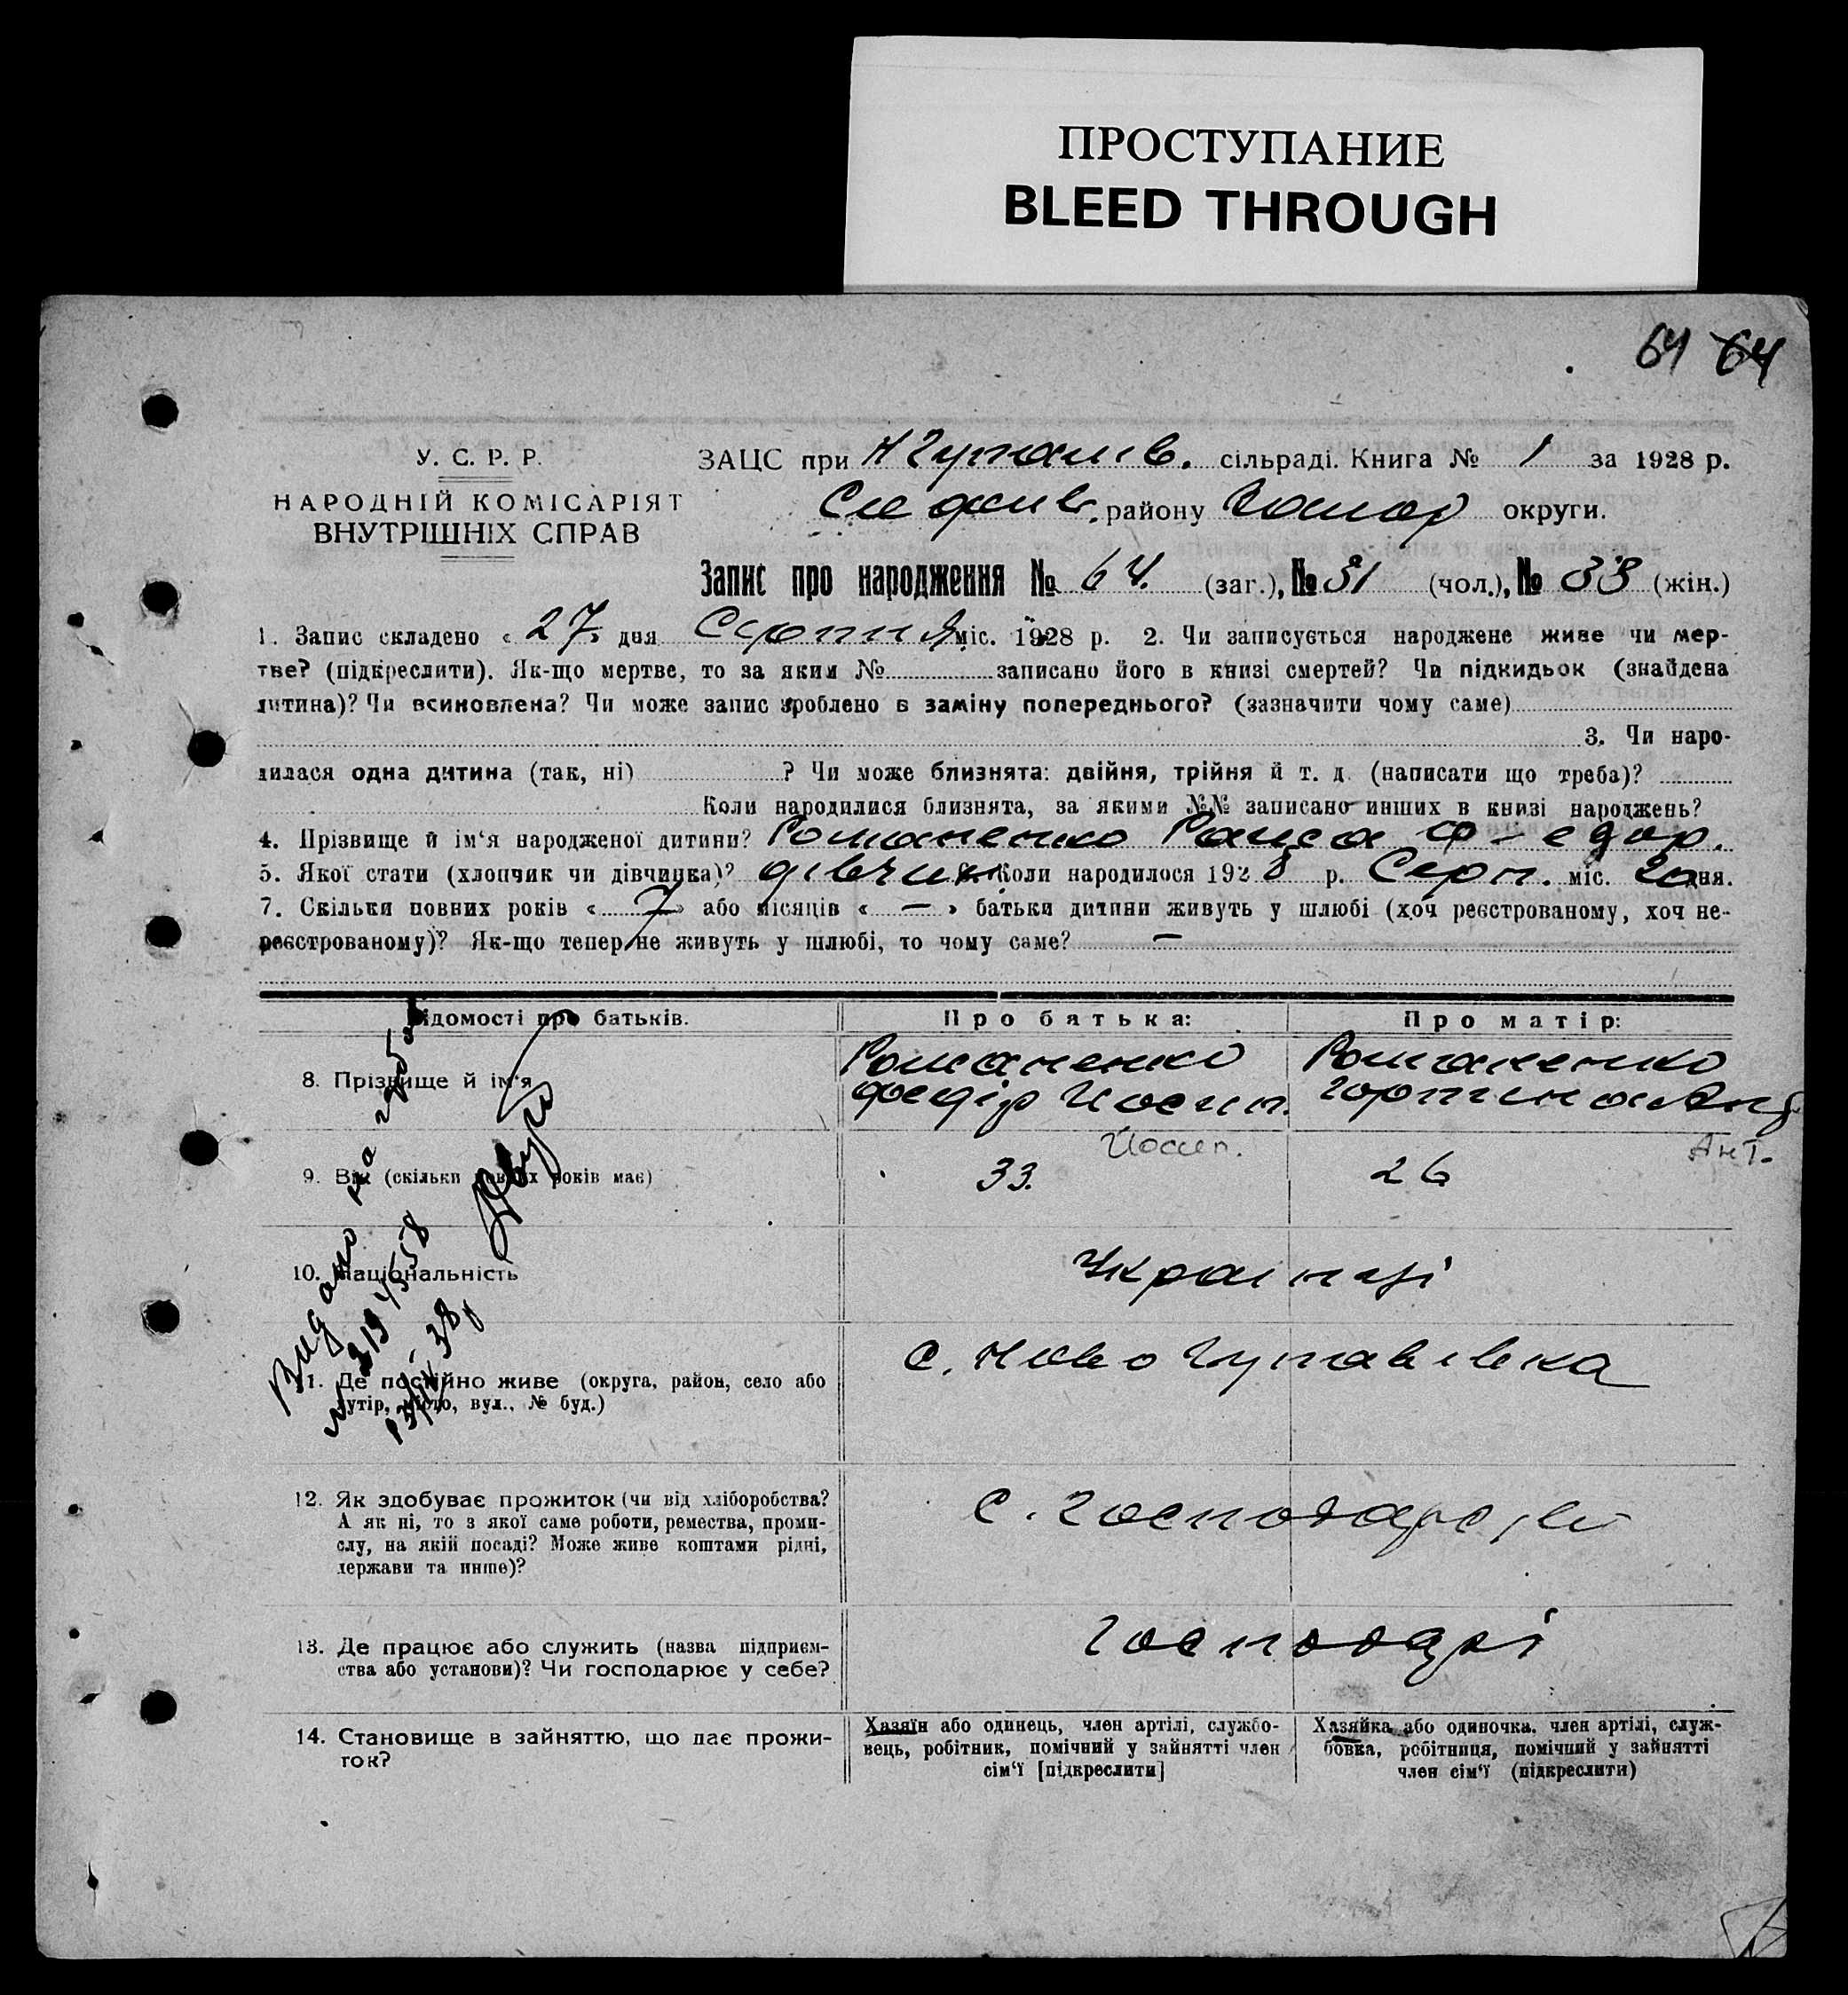 ПРОСТУПАНИЕ
BLEED THROUGH
64 64
У. С. Р. Р.
НАРОДНІЙ КОМІСАРІЯТ
ВНУТРІШНІХ СПРАВ
ЗАЦС при сільраді. Книга № 1 за 1928 р.
району округи.
Запис про народження № 64. (заг.), № 31 (чол.), № 33 (жін.)
1. Запис складено « 27 » дня Серпня міс. 1928 р. 2. Чи записується народжене живе чи мер-
тве? (підкреслити). Як-що мертве, то за яким № записано його в книзі смертей? Чи підкидьок (знайдена
дитина)? Чи всиновлена? Чи може запис зроблено в заміну попереднього? (зазначити чому саме)
3. Чи наро-
дилася одна дитина (так, ні) ? Чи може близнята: двійня, трійня й т. д. (написати що треба)?
Коли народилися близнята, за якими №№ записано инших в книзі народжень?
4. Прізвище й ім‘я народженої дитини? Романенко Раиса Федор.
5. Якої стати (хлопчик чи дівчинка)? дівчин Коли народилося 1928 р. Серп. міс. 20 дня.
7. Скільки повних років « 7 » або місяців « — » батьки дитини живуть у шлюбі (хоч реєстрованому, хоч не-
реєстрованому)? Як-що тепер не живуть у шлюбі, то чому саме? —
Відомості про батьків.
Про батька:
Про матір:
8. Прізвище й ім‘я
Романенко
Федір Иосип.
Романенко
Горпина Анд
Йосип.
Ант.
9. Вік (скільки повних років має)
33.
26
10. Національність
Українці
11. Де постійно живе (округа, район, село або
хутір, місто, вул., № буд.)
с. Ново
12. Як здобуває прожиток (чи від хліборобства?
А як ні, то з якої саме роботи, ремества, проми-
слу, на якій посаді? Може живе коштами рідні,
держави та инше)?
С.
13. Де працює або служить (назва підприєм-
ства або установи)? Чи господарює у себе?
Господарі
14. Становище в зайняттю, що дає прожи-
ток?
Хазяїн або одинець, член артілі, службо-
вець, робітник, помічний у зайнятті член
сім‘ї [підкреслити]
Хазяйка або одиночка, член артілі, служ-
бовка, робітниця, помічний у зайнятті
член сім‘ї (підкреслити)
Видано на